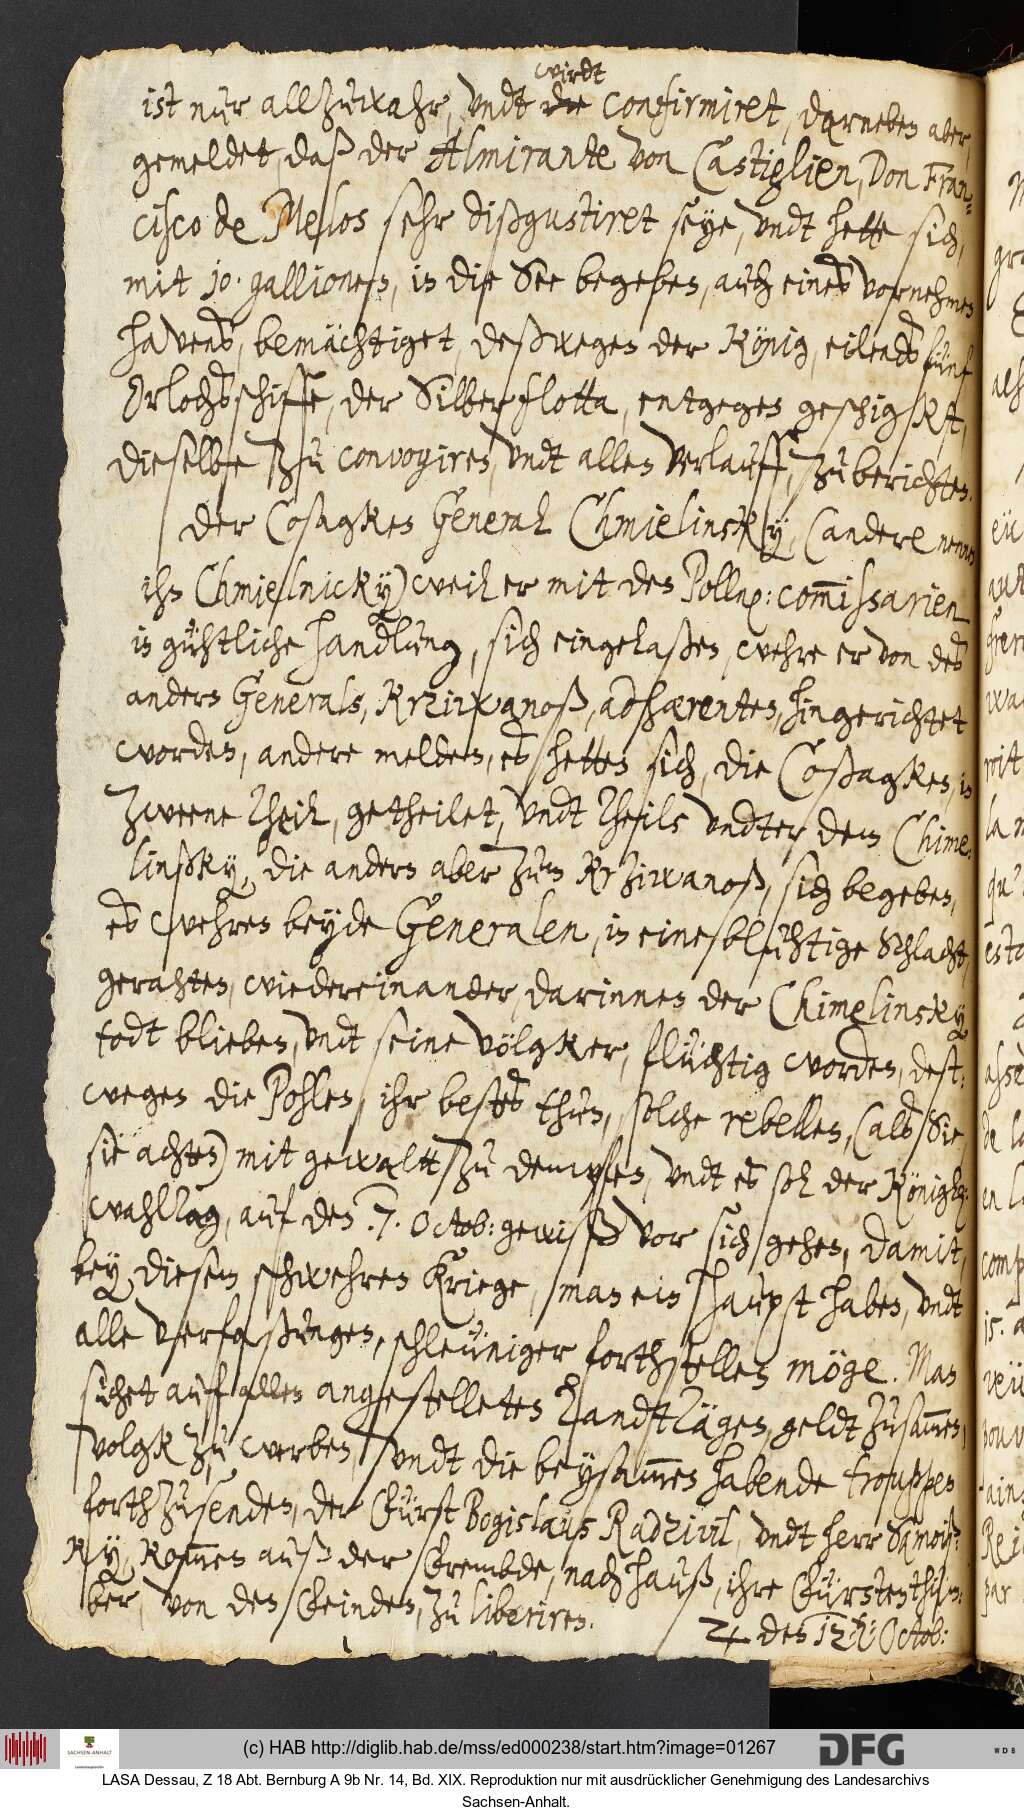 wirdt
ist nur allzuwahr, undt die confirmiret, darneben aber,
gemeldet, daß der Almirante von Castiglien, Don Fran¬
cisco de Melos sehr dißgustiret seye, undt hette sich,
mit 10. gallionen, in die See begeben, auch eines vornehmen
havens, bemächtiget, deßwegen der König, eilends fünf
Orlochsschiffe, der Silberflotta, entgegen geschigkt,
dieselbe zu convoyiren, undt allen verlauff, zu berichten.
Der Cosagken General Chmielinsky, (andere nennen
ihn Chmielnicky) weil er mit den Polln: com̅issarien
in gühtliche handlung, sich eingelaßen, wehre er von des
andern Generals, Krziwanoß, adhærenten, hingerichtet
worden, andere melden, es hetten sich, die Coßagken, in
Zweene Theil, getheilet, undt Theils undter dem Chime¬
linßky, die andern aber zum Krziwanoß, sich begeben,
es wehren beyde Generalen, in eine bluhtige Schlacht,
gerahten, wiedereinander, darinnen der Chimelinsky
todt blieben, undt seine völgker, flüchtig worden, deß¬
wegen die Pohlen, ihr bestes thun, solche rebellen, (als Sie
sie achten) mit gewaltt zu dempfen, undt es sol der Königl:
wahltag, auf den .7. Octob: gewiß vor sich gehen, damit,
bey diesem schwehren Kriege, man ein haupt haben, undt
alle verfaßungen, schleuniger forthstellen möge. Man
siehet auf allen angestelleten Landttägen, geldt zusam̅en,
volgk zu werben, undt die beysam̅en habende trouppen
forthzusenden, der Fürst Bogislaus Radzivil, undt herr Samoiß¬
ky, kom̅en auß der frembde, nach hauß, ihre Fürstenthüm¬
ber, von den Feinden, zu liberiren.
♃ den 12. Octob:
(c) HAB http://diglib.hab.de/mss/ed000238/start.htm?image=01267
SACHSEN-ANHALT
DFG
WDB
LASA Dessau, Z 18 Abt. Bernburg A 9b Nr. 14, Bd. XIX. Reproduktion nur mit ausdrücklicher Genehmigung des Landesarchivs
Sachsen-Anhalt.